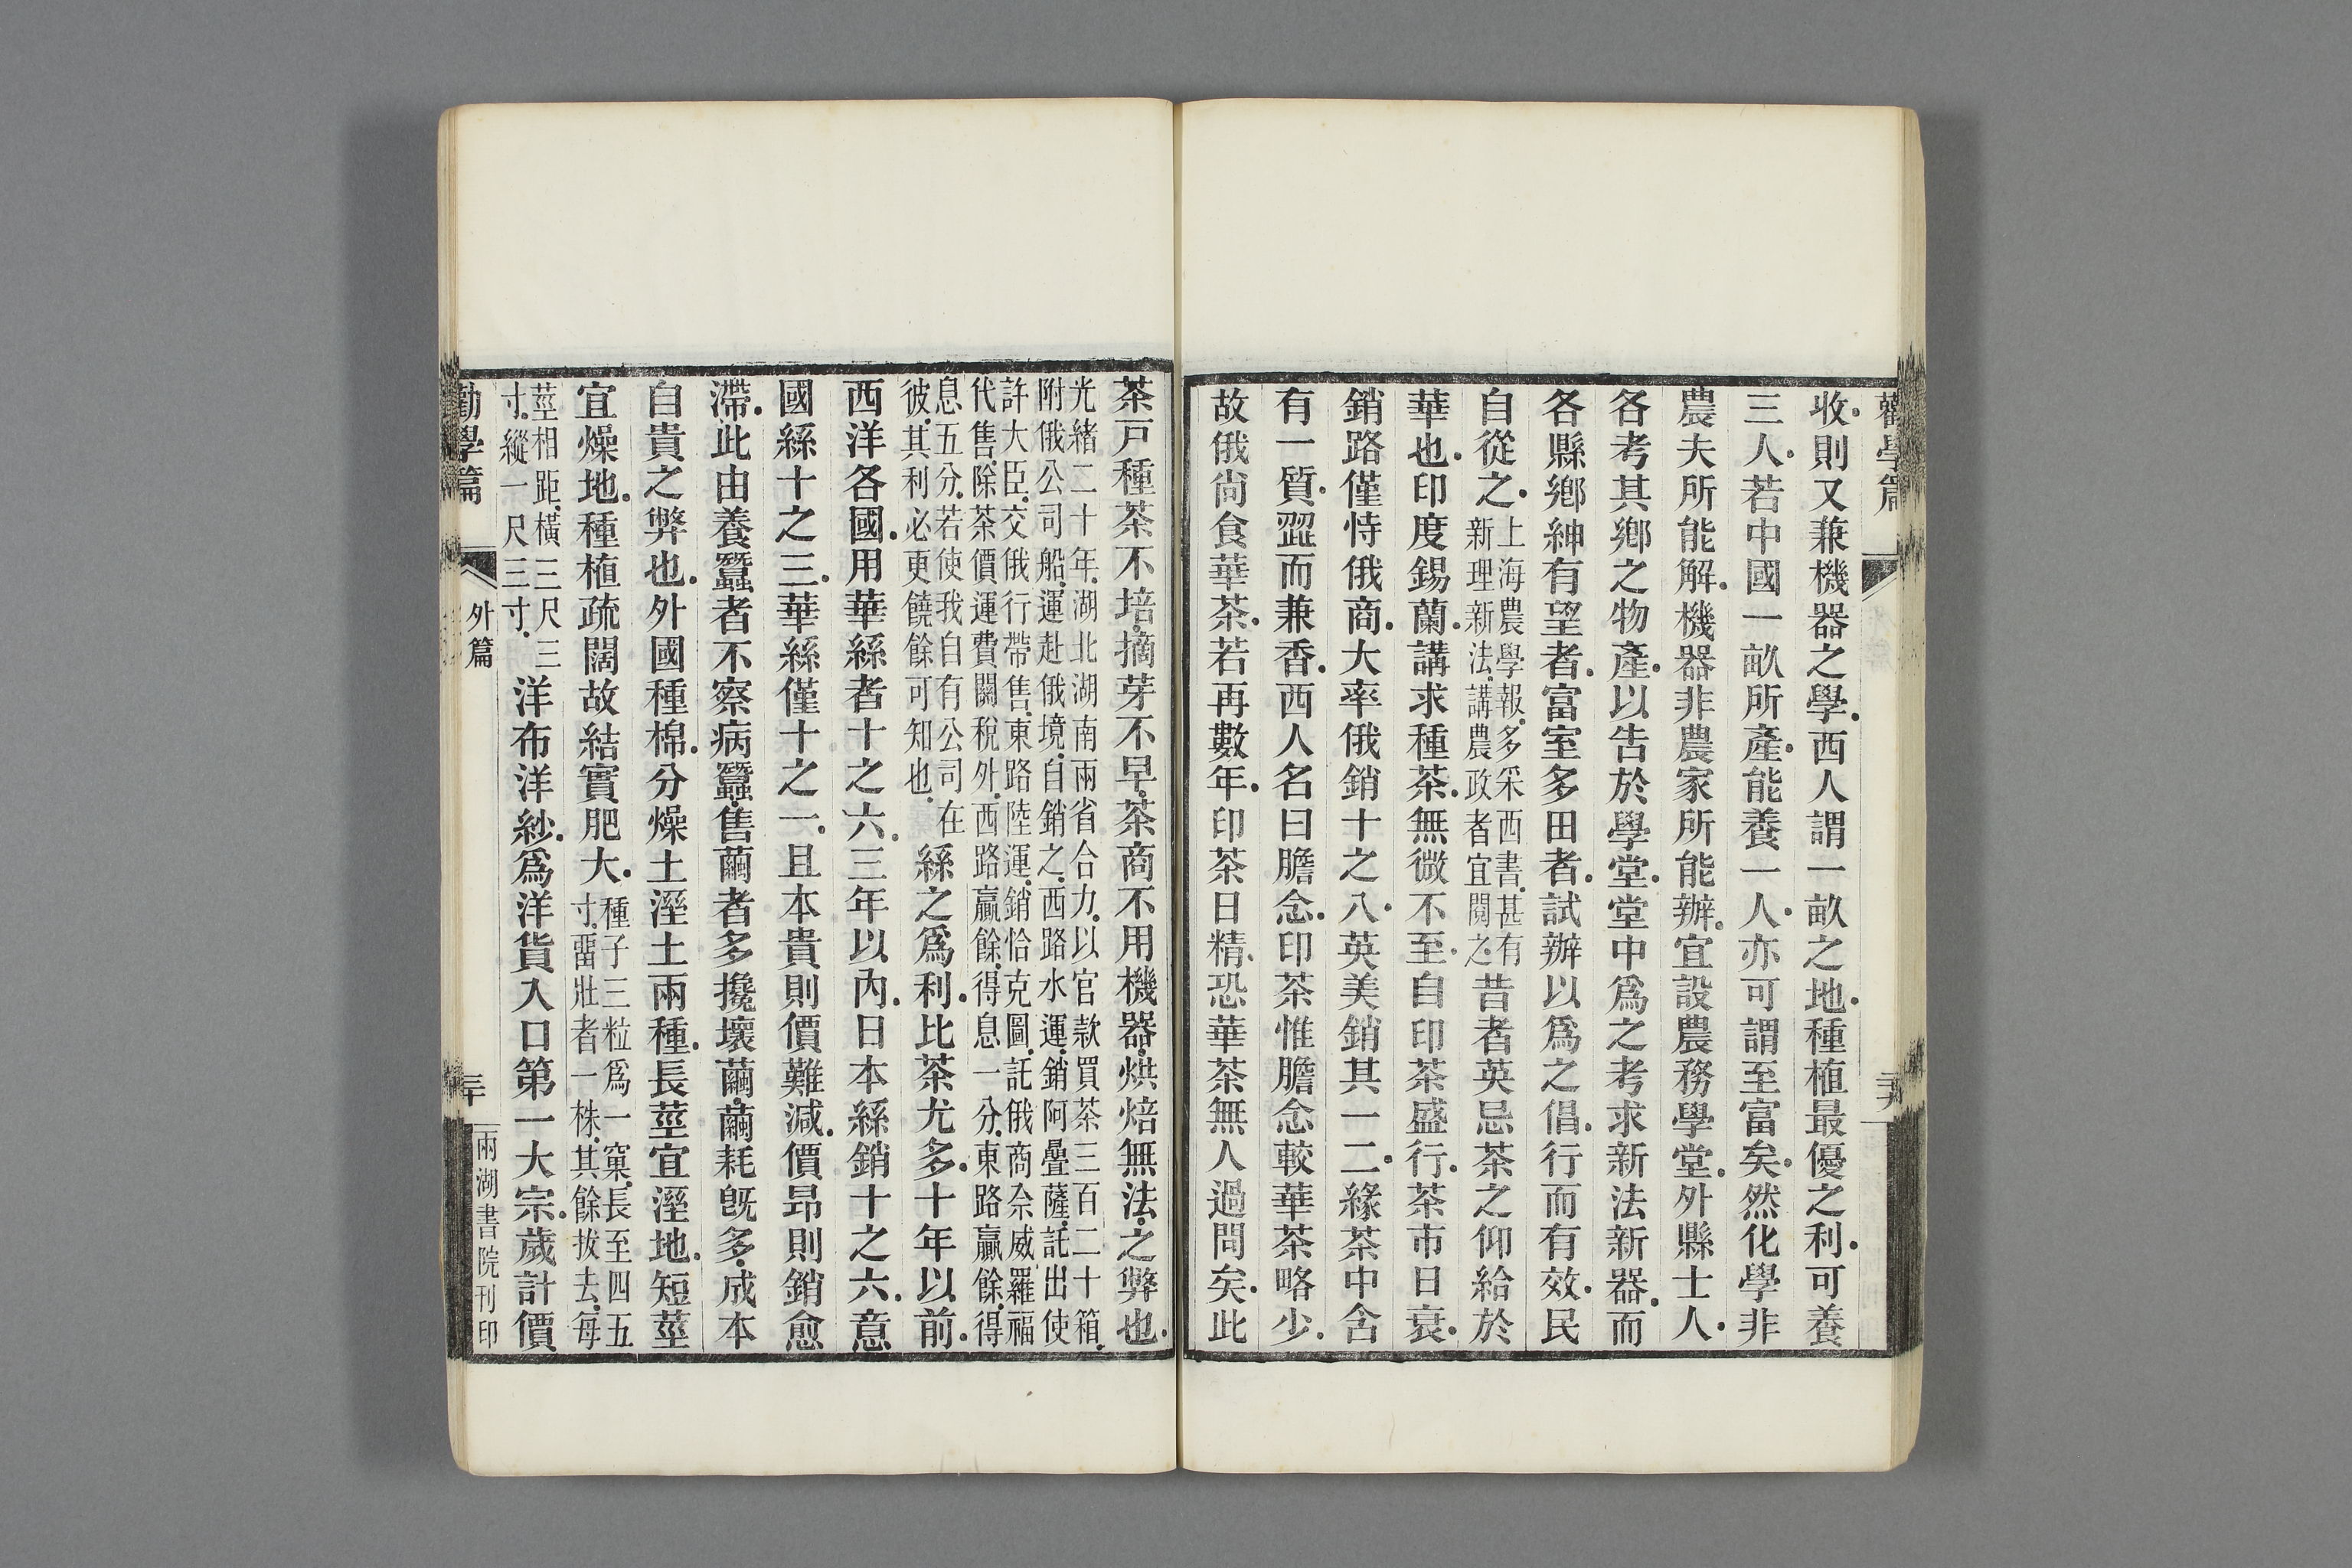 勸學篇
收則又兼機器之學西人謂一畝之地種植最優之利可養
三人若中國一畝所產能養一人亦可謂至富矣然化學非
農夫所能解機器非農家所能辦宜設農務學堂外縣士人
各考其鄉之物產以告於學堂堂中爲之考求新法新器而
各縣鄉紳有望者富室多田者試辦以爲之倡行而有效民
自從之上海農學報多采西書甚有
新理新法講農政者宜閱之昔者英忌茶之仰給於
華也印度錫蘭講求種茶無微不至自印茶盛行茶市日衰
銷路僅恃俄商大率俄銷十之八英美銷其一二緣茶中含
有一質澀而兼香西人名曰膽念印茶惟膽念較華茶略少
故俄尚食華茶若再數年印茶日精恐華茶無人過問矣此
茶戸種茶不培摘芽不早茶商不用機器烘焙無法之弊也
光緒二十年湖北湖南兩省合力以官款買茶三百二十箱
附俄公司船運赴俄境自銷之西路水運銷阿疊薩託出使
許大臣交俄行帶售東路陸運銷恰克圖託俄商佘威羅福
代售除茶價運費關稅外西路贏餘得息一分東路贏餘得
息五分若使我自有公司在
彼其利必更饒餘可知也絲之爲利比茶尤多十年以前
西洋各國用華絲者十之六三年以內日本絲銷十之六意
國絲十之三華絲僅十之一且本貴則價難減價昂則銷愈
滯此由養蠶者不察病蠶售繭者多攙壞繭繭耗既多成本
自貴之弊也外國種棉分燥土溼土兩種長莖宜溼地短莖
宜燥地種植疏闊故結實肥大種子三粒爲一窠長至四五
寸畱壯者一株其餘拔去每
莖相距橫三尺三
寸縱一尺三寸洋布洋紗爲洋貨入口第一大宗歲計價
勸學篇
外篇
二十
兩湖書院刊印